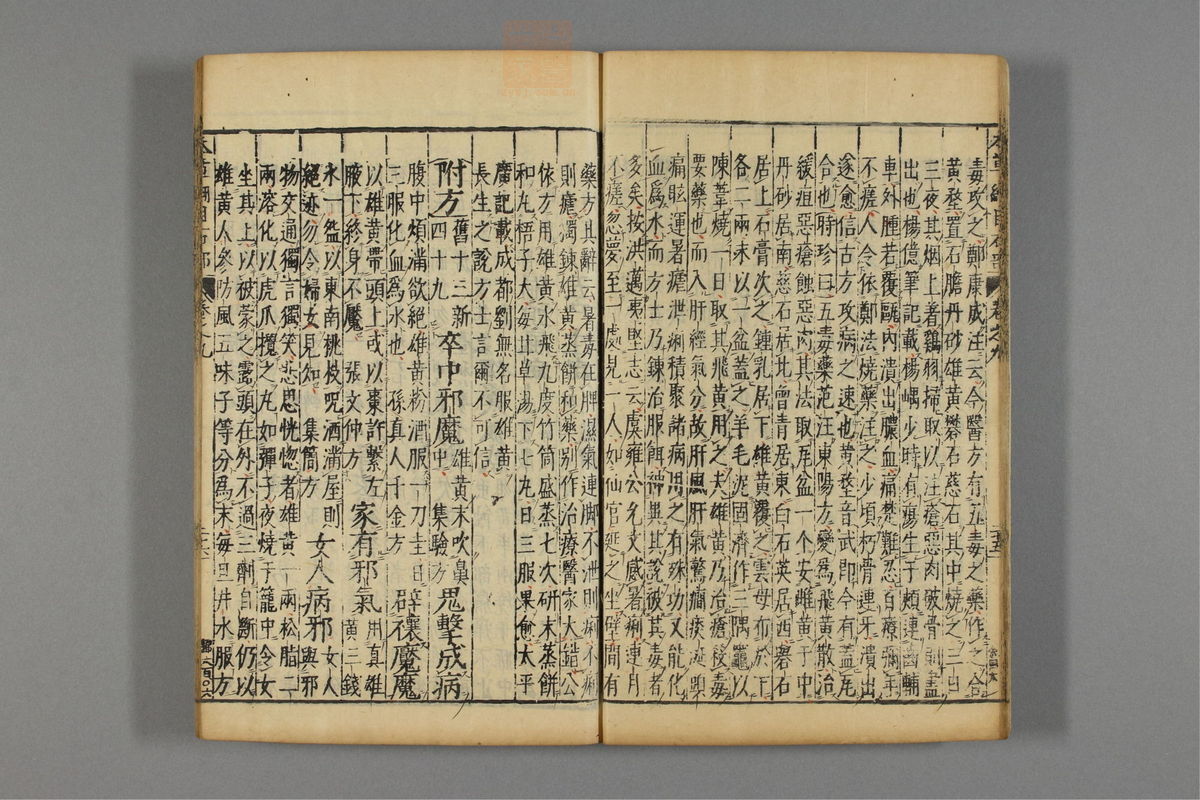 毒攻之鄭康成注云今醫方有五毒之藥作之合
黃堥置石膽丹砂雄黃礬石慈石其中燒之三日
三夜其烟上著雞翎掃取以注瘡惡肉破骨則盡
出也楊億筆記載楊嵎少時有瘍生于頰連齒輔
車外腫若覆甌內潰出膿血痛楚難忍百療彌年
不瘥人令依鄭法燒藥注之少頃朽骨連牙潰出
遂愈信古方攻病之速也黃堥音武即今有蓋瓦
合也時珍曰五毒藥范汪東陽方變爲飛黃散治
緩疽惡瘡蝕惡肉其法取瓦盆一个安雌黃于中
丹砂居南慈石居北曾青居東白石英居西礬石
居上石膏次之鍾乳居下雄黃覆之雲母布於下
各二兩末以一盆蓋之羊毛泥固濟作三隅竈以
陳葦燒一日取其飛黃用之夫雄黃乃治瘡殺毒
要藥也而入肝經氣分故肝風肝氣驚癇痰涎頭
痛眩運暑瘧泄痢積聚諸病用之有殊功又能化
血爲水而方士乃鍊治服餌神異其說被其毒者
多矣按洪邁夷堅志云虞雍公允文感暑痢連月
不瘥忽夢至一處見一人如仙官延之坐壁間有
藥方其辭云暑毒在脾濕氣連脚不泄則痢不痢
則瘧獨鍊雄黃蒸餅和藥别作治療醫家大錯公
依方用雄黃水飛九度竹筒盛蒸七次研末蒸餅
和丸梧子大每甘草湯下七丸日三服果愈太平
廣記載成都劉無名服雄黃
長生之說方士言爾不可信
附方 舊十三新四十九 卒中邪魔 雄黃末吹鼻中 集驗方 鬼擊成病
腹中煩滿欲絕雄黃粉酒服一刀圭日
三服化血爲水也 孫真人千金方 辟禳魔魘
以雄黃帶頭上或以棗許繫左
腋下終身不魘 張文仲方 家有邪氣 用真雄黃三錢
水一盌以東南桃枝咒洒滿屋則
絕迹勿令婦女見知 集簡方 女人病邪 女人與邪
物交通獨言獨笑悲思恍惚者雄黃一兩松脂二
兩溶化以虎爪攪之丸如彈子夜燒于籠中令女
坐其上以被蒙之露頭在外不過三劑自斷仍以
雄黃人參防風五味子等分爲末每旦井水服方